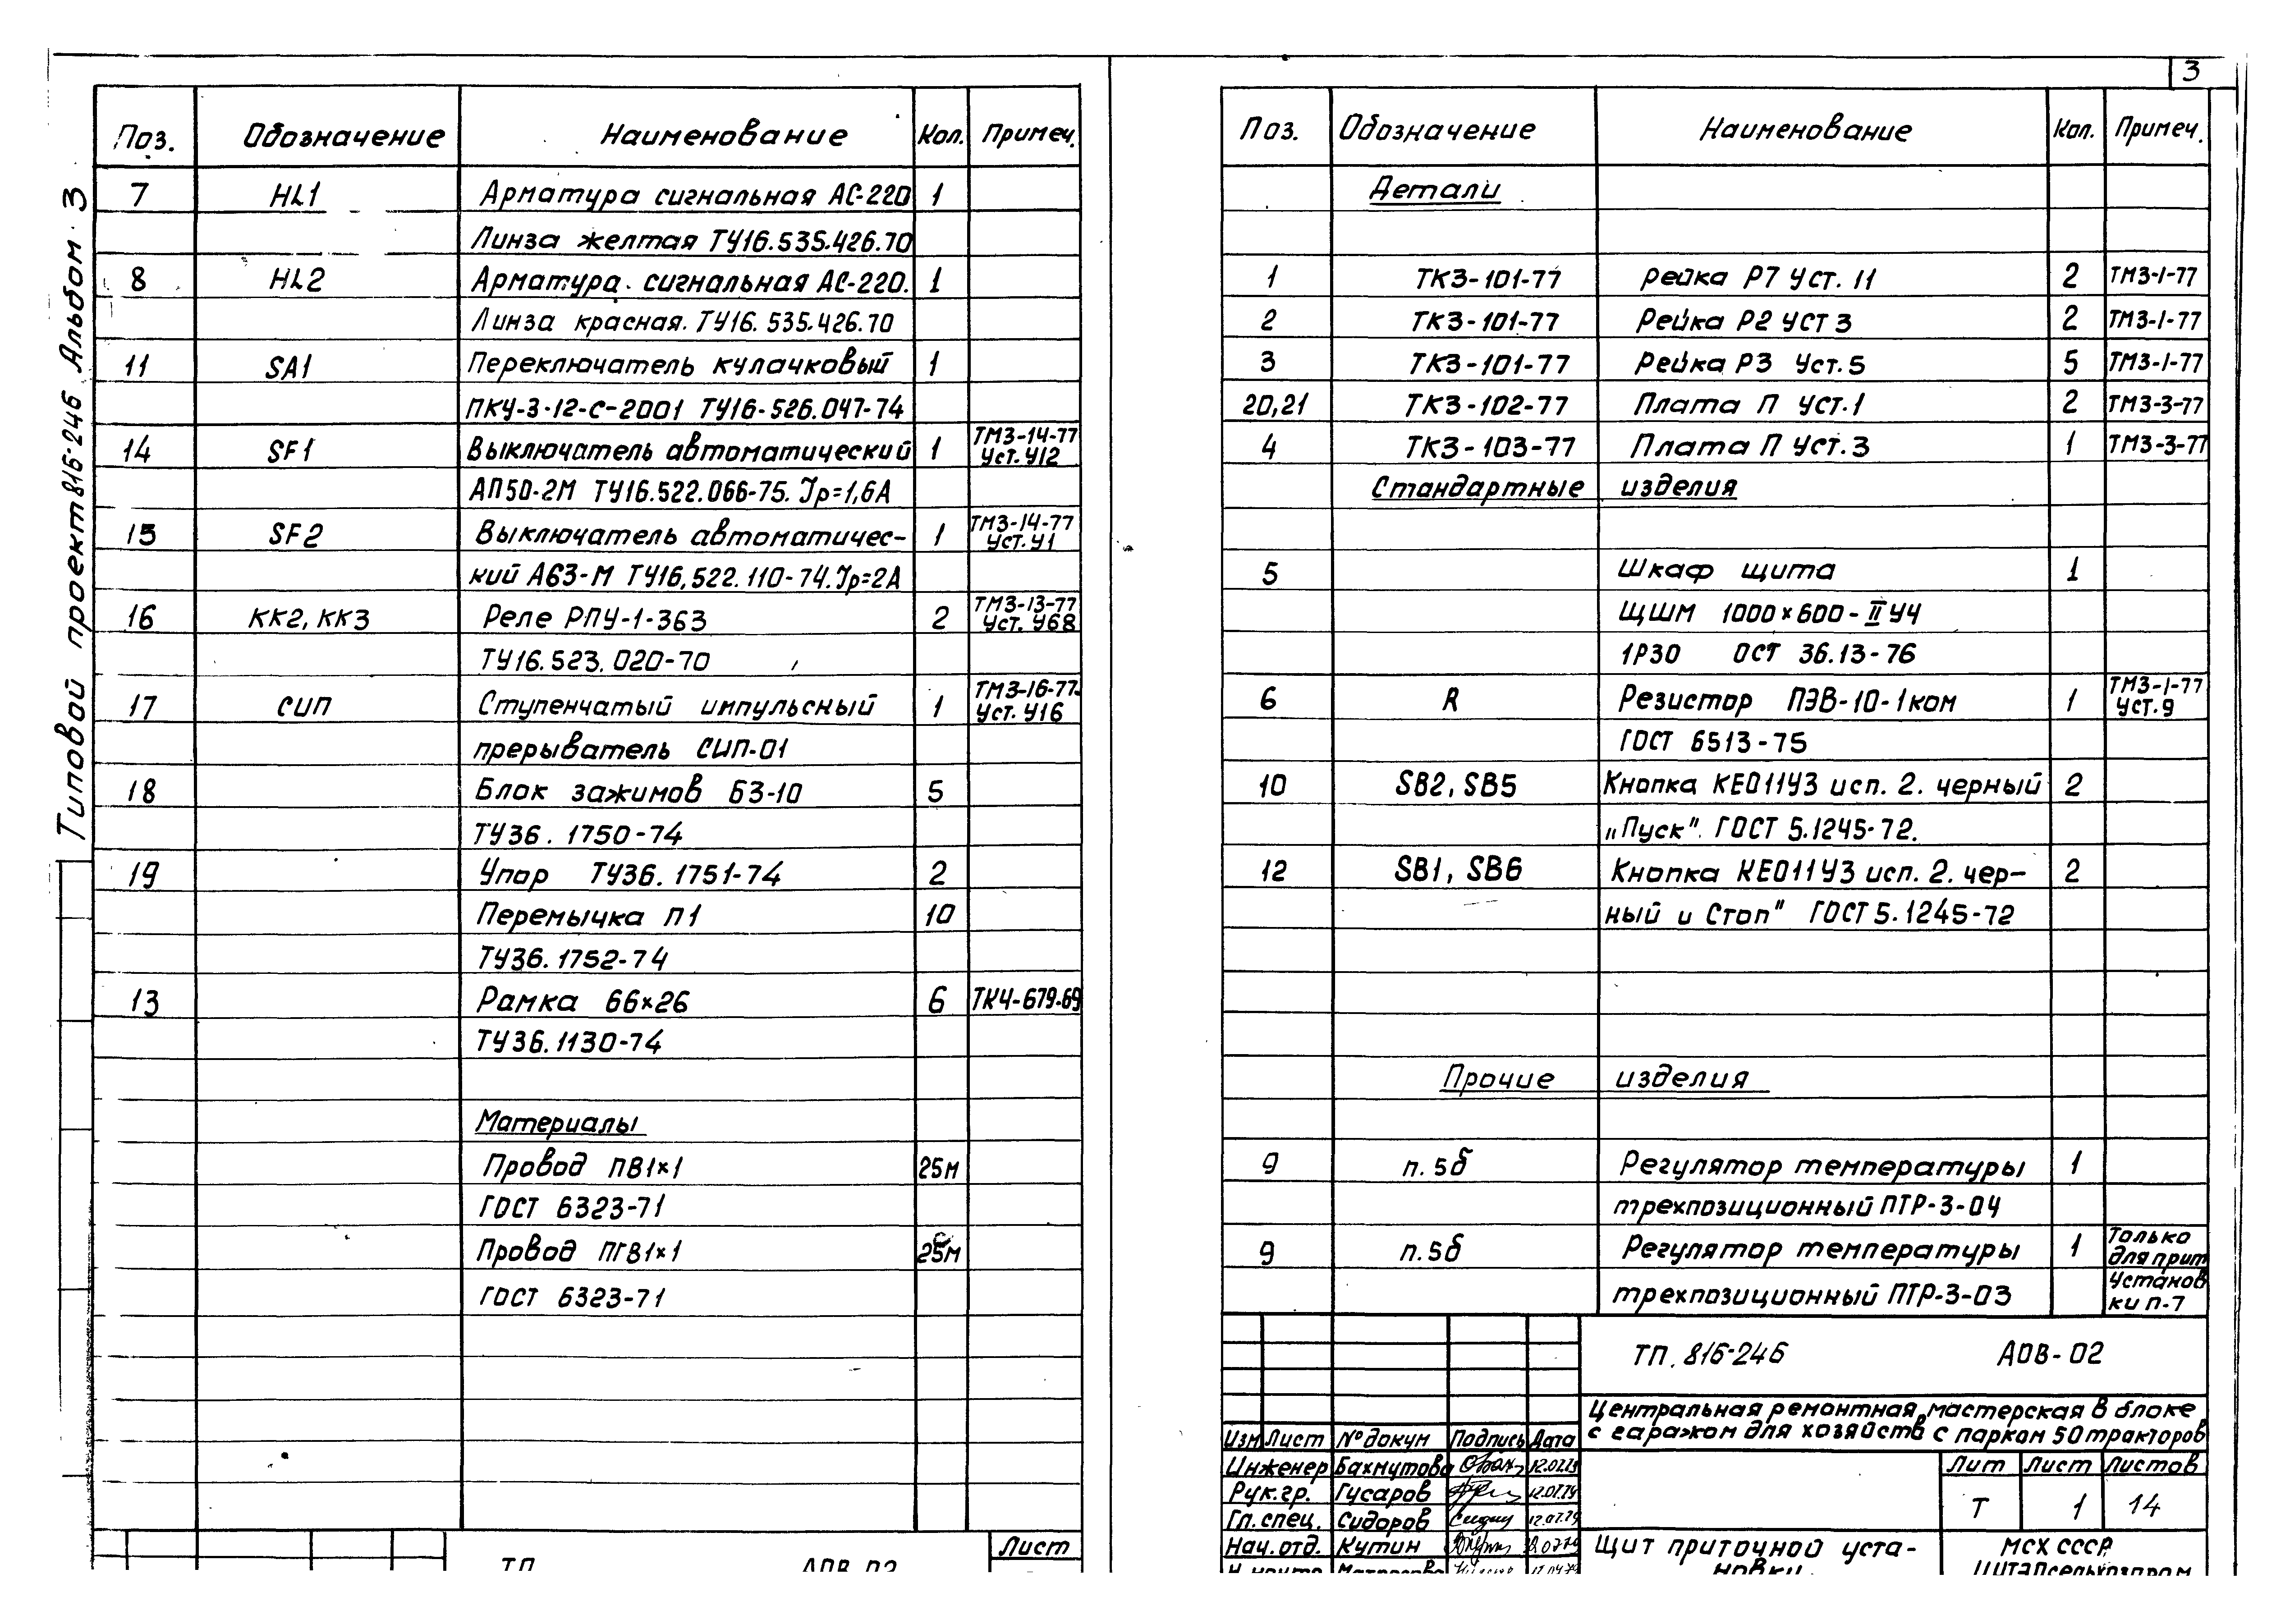 3
Типовой проект 816-246 Альбом 3
Поз. Обозначение Наименование Кол. Примеч.
7 HL1 Арматура сигнальная АС-220 1
Линза желтая ТУ16.535.426.70
8 HL2 Арматура сигнальная АС-220. 1
Линза красная. ТУ16.535.426.70
11 SA1 Переключатель кулачковый 1
ПКУ-3-12-С-2001 ТУ16-526.047-74
14 SF1 Выключатель автоматический 1 ТМ3-14-77 Уст. У12
АП50-2М ТУ16.522.066-75. Jр=1,6А
15 SF2 Выключатель автоматичес- 1 ТМ3-14-77 Уст. У1
кий А63-М ТУ16,522.110-74. Jр=2А
16 КК2, КК3 Реле РПУ-1-363 2 ТМ3-13-77 Уст. У68
ТУ16.523.020-70
17 СИП Ступенчатый импульсный 1 ТМ3-16-77. Уст. У16
прерыватель СИП-01
18 Блок зажимов БЗ-10 5
ТУ36.1750-74
19 Упор ТУ36.1751-74 2
Перемычка П1 10
ТУ36.1752-74
13 Рамка 66×26 6 ТК4-679-69
ТУ36.1130-74
Материалы
Провод ПВ1×1 25м
ГОСТ 6323-71
Провод ПГВ1×1 25м
ГОСТ 6323-71
Лист
ТП АОВ-02
Поз. Обозначение Наименование Кол. Примеч.
Детали
1 ТК3-101-77 рейка Р7 Уст. 11 2 ТМ3-1-77
2 ТК3-101-77 Рейка Р2 УСТ 3 2 ТМ3-1-77
3 ТК3-101-77 Рейка Р3 Уст. 5 5 ТМ3-1-77
20,21 ТК3-102-77 Плата П Уст.1 2 ТМ3-3-77
4 ТК3-103-77 Плата П Уст.3 1 ТМ3-3-77
Стандартные изделия
5 Шкаф щита 1
ЩШМ 1000×600-II У4
1Р30 ОСТ 36.13-76
6 R Резистор ПЭВ-10-1ком 1 ТМ3-1-77 Уст.9
ГОСТ 6513-75
10 SB2, SB5 Кнопка КЕ011У3 исп. 2. черный 2
„Пуск". ГОСТ 5.1245-72.
12 SB1, SB6 Кнопка КЕ011У3 исп. 2. чер- 2
ный и Стоп" ГОСТ 5.1245-72
Прочие изделия
9 п. 5б Регулятор температуры 1
трехпозиционный ПТР-3-04
9 п. 5б Регулятор температуры 1 Только для прит
трехпозиционный ПТР-3-03 установ ки п-7
ТП. 816-246 АОВ-02
Центральная ремонтная мастерская в блоке
с гаражом для хозяйств с парком 50 тракторов
Изм Лист № докум Подпись Дата
Инженер Бахмутова 12.07.79
Рук. гр. Гусаров 12.07.79
Гл. спец. Сидоров 12.07.79
Нач. отд. Кутин
Лит Лист Листов
Т 1 14
Щит приточной уста-
новки
МСХ СССР